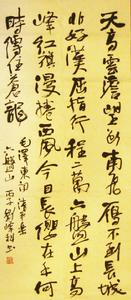 天高雲澹望断南飛雁不到長城
非好漢屈指行程二萬六盤山上高
峰紅旗漫捲西風今日長纓在手何
時縛住蒼龍 毛澤東詞清平樂
六盤山 丙子 劉